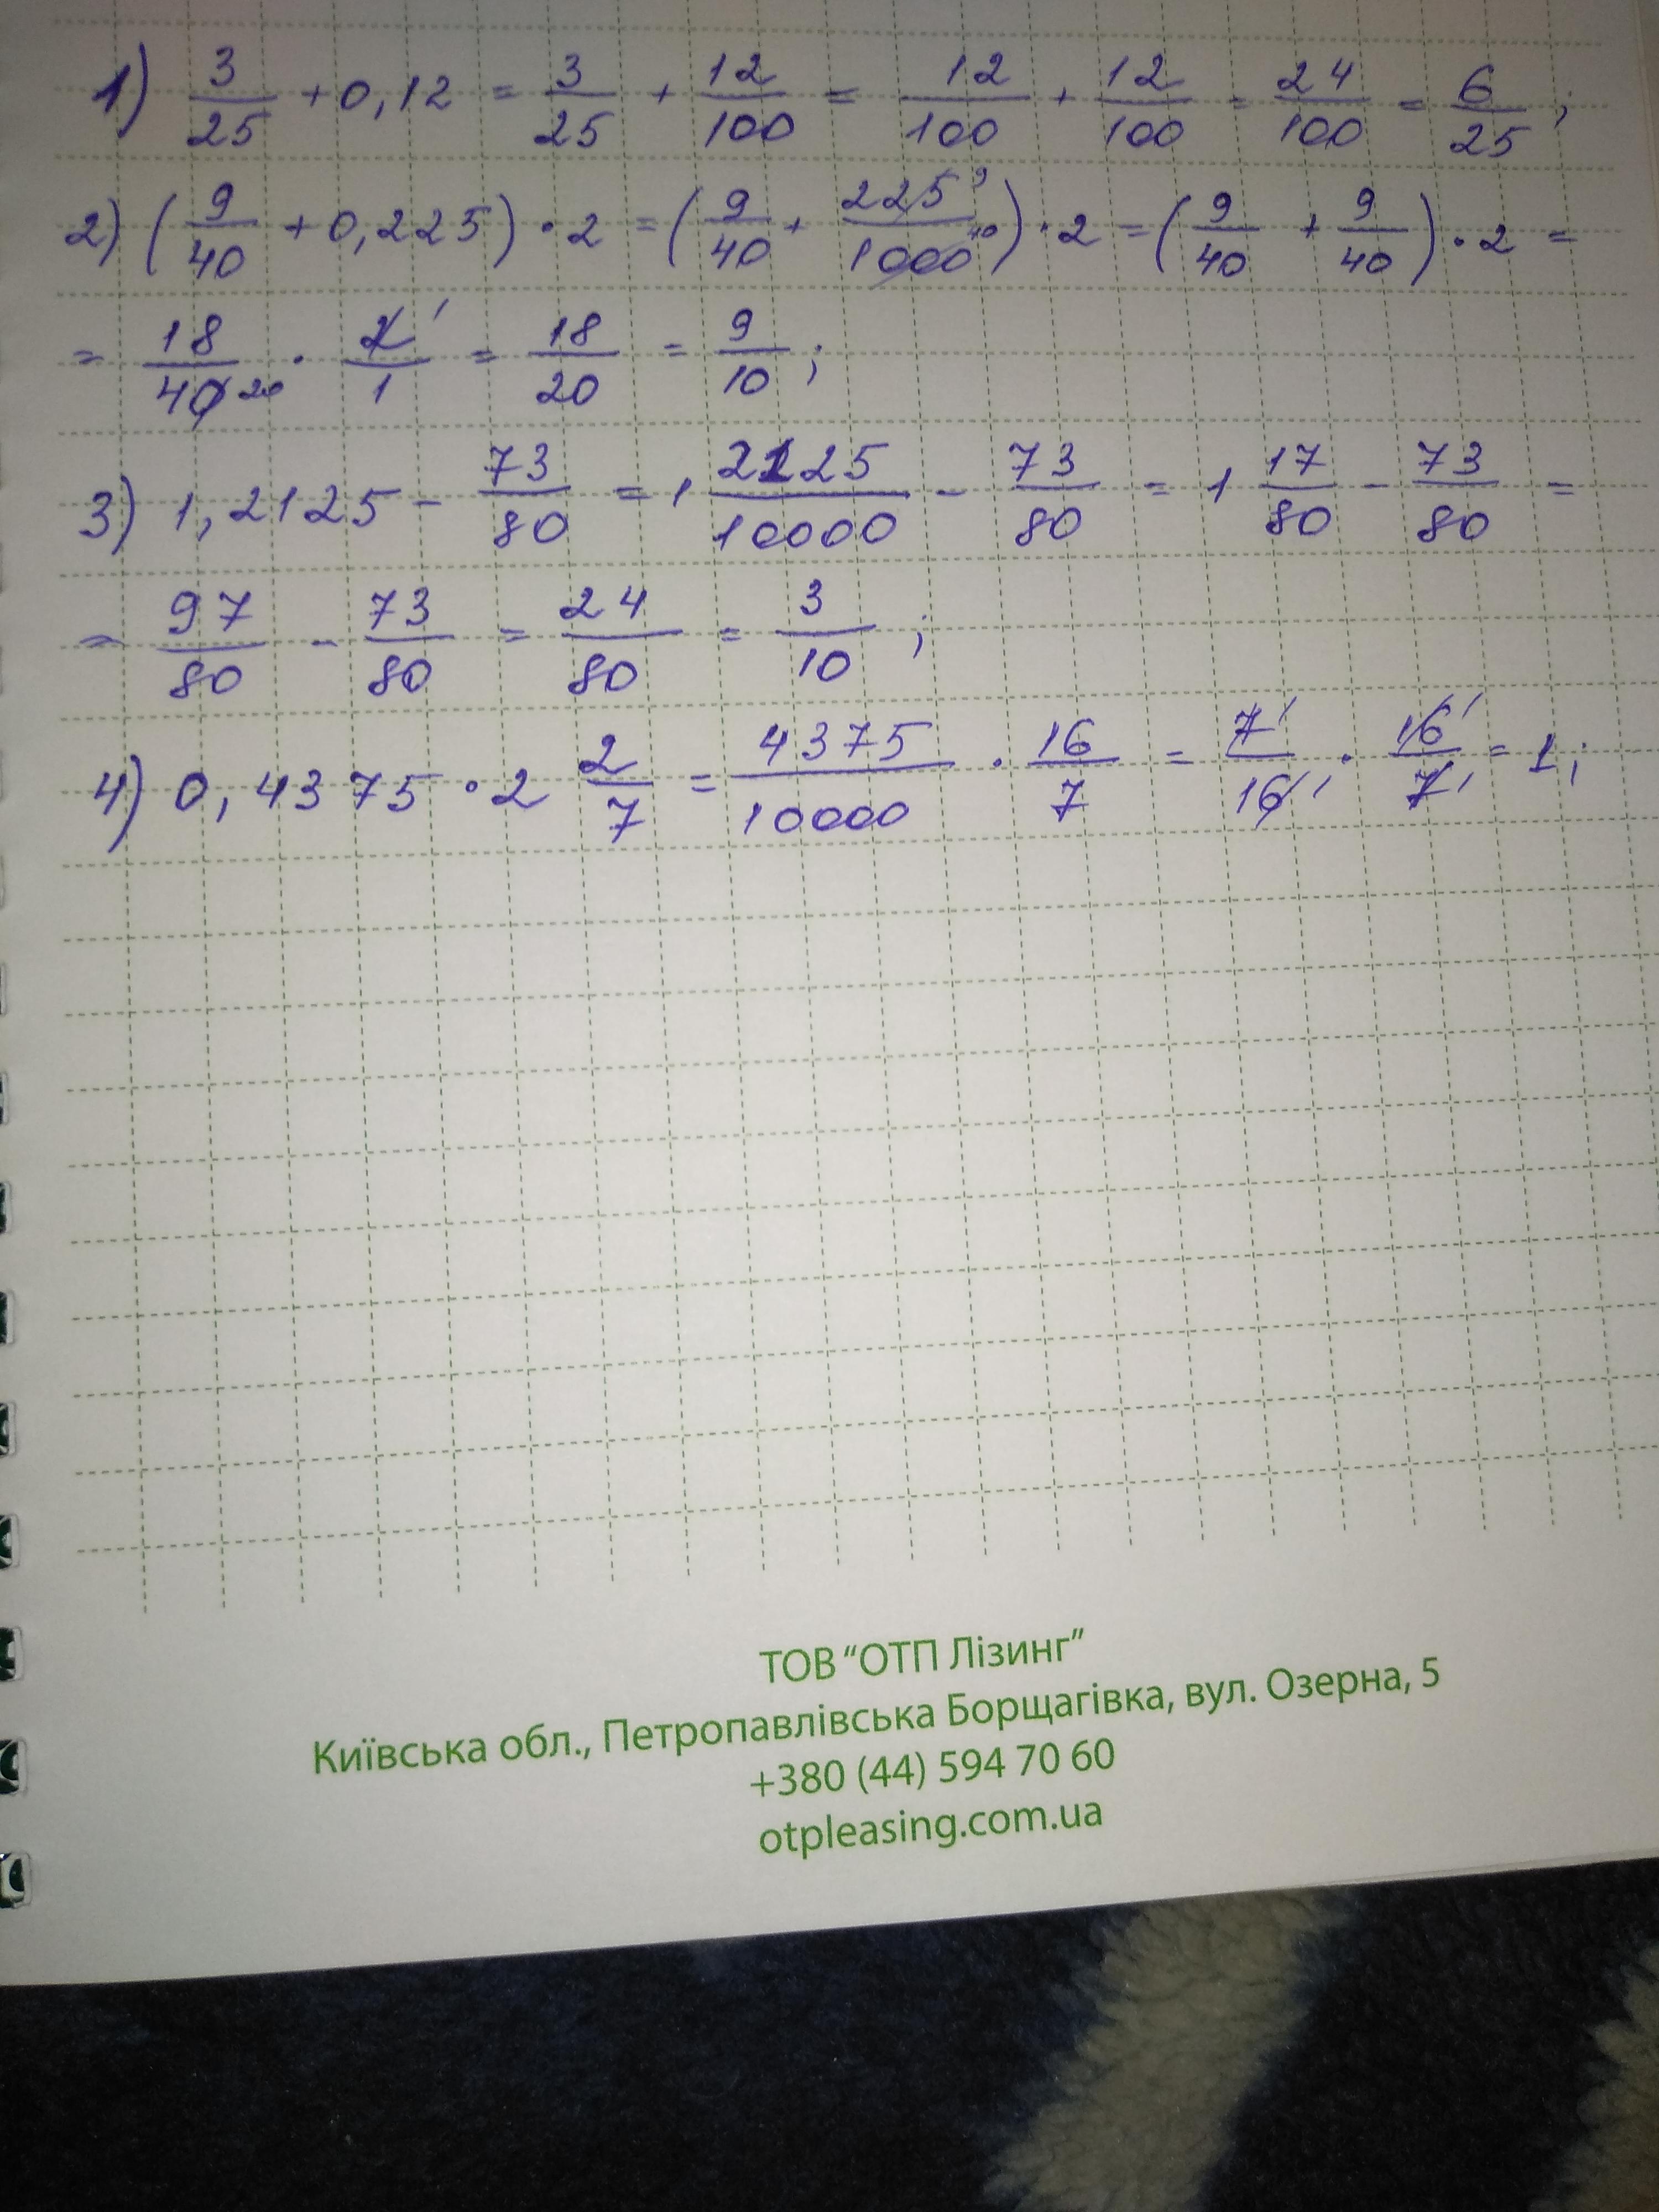 1) 3/25 + 0,12 = 3/25 + 12/100 = 12/100 + 12/100 = 24/100 = 6/25 ;
2) (9/40 + 0,225) · 2 = (9/40 + 225 9/1000 40) · 2 = (9/40 + 9/40) · 2 =
= 18/40 20 · 2 1/1 = 18/20 = 9/10 ;
3) 1,2125 - 73/80 = 1 2125/10000 - 73/80 = 1 17/80 - 73/80 =
= 97/80 - 73/80 = 24/80 = 3/10 ;
4) 0,4375 · 2 2/7 = 4375/10000 · 16/7 = 7 1/16 1 · 16 1/7 1 = 1;
ТОВ “ОТП Лізинг”
Київська обл., Петропавлівська Борщагівка, вул. Озерна, 5
+380 (44) 594 70 60
otpleasing.com.ua